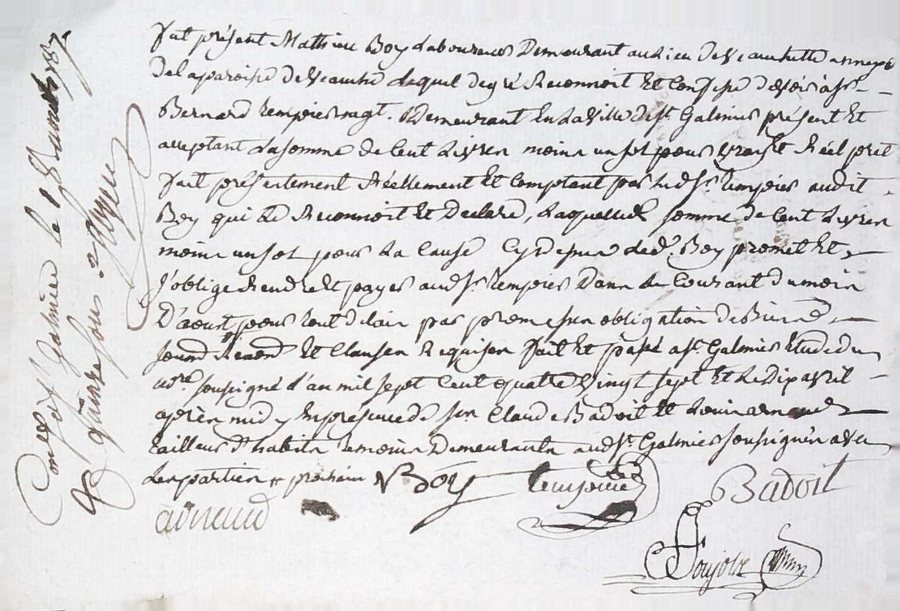 fut présent Mathieu Boy laboureur Demeurant au lieu de veauchette annexe
de la paroisse de veauche lequel de gré Reconnoit Et Confesse devoir à sr
Bernard tempoier negt. Demeurant En la ville de st. Galmier présent Et
acceptant la somme de Cent Livres moins un sol pour vray et Réel prêt
fait présentement Réellement Et Comptant par led. sr. tempoier audit
Boy qui le Reconnoit Et Declare, laquelle somme de Cent Livres
moins un sol pour la Cause Cydessus led. Boy promet Et
s'oblige Rendre Et payer aud. sr tempoier Dans le Courant du mois
D'aoust pour tout délai par promesse obligation de Biens
soumd. Renond. Et Clauses Requises fait Et passé a st. Galmier Etude du
nore. soussigné l'an mil sept Cent quatre vingt sept Et le dix avril
après midy En presence de sr. Claude Badoit Et arnaud
tailleur d'habits temoins Demeurants aud. st. Galmier soussignés avec
les parties prochain Boy tempoier Badoit
arnaud
Controllé a st. Galmier le avril 1787
Reçu quinze sous